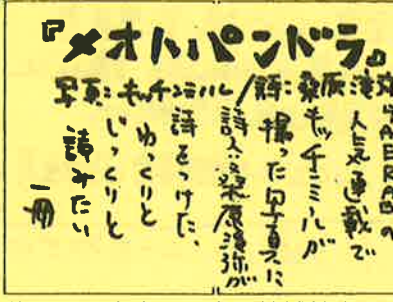 『メオトパンドラ』
写真:キッチンミノル/詩:桑原滝弥
「AERAの
人気連載で
キッチンミノルが
撮った写真に
詩人・桑原滝弥が
詩をつけた。
ゆっくりと
じっくりと
読みたい
一冊